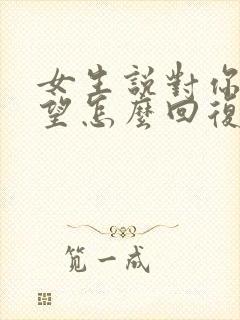 女生説對你
望怎麼回復
笕一成